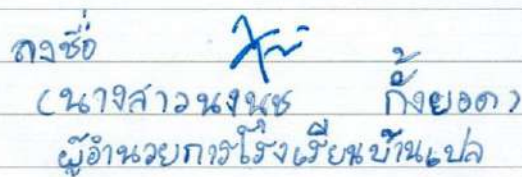 ลงชื่อ
(นางสาวนงนุช กิ้งยอด)
ผู้อำนวยการโรงเรียนบ้านแปล